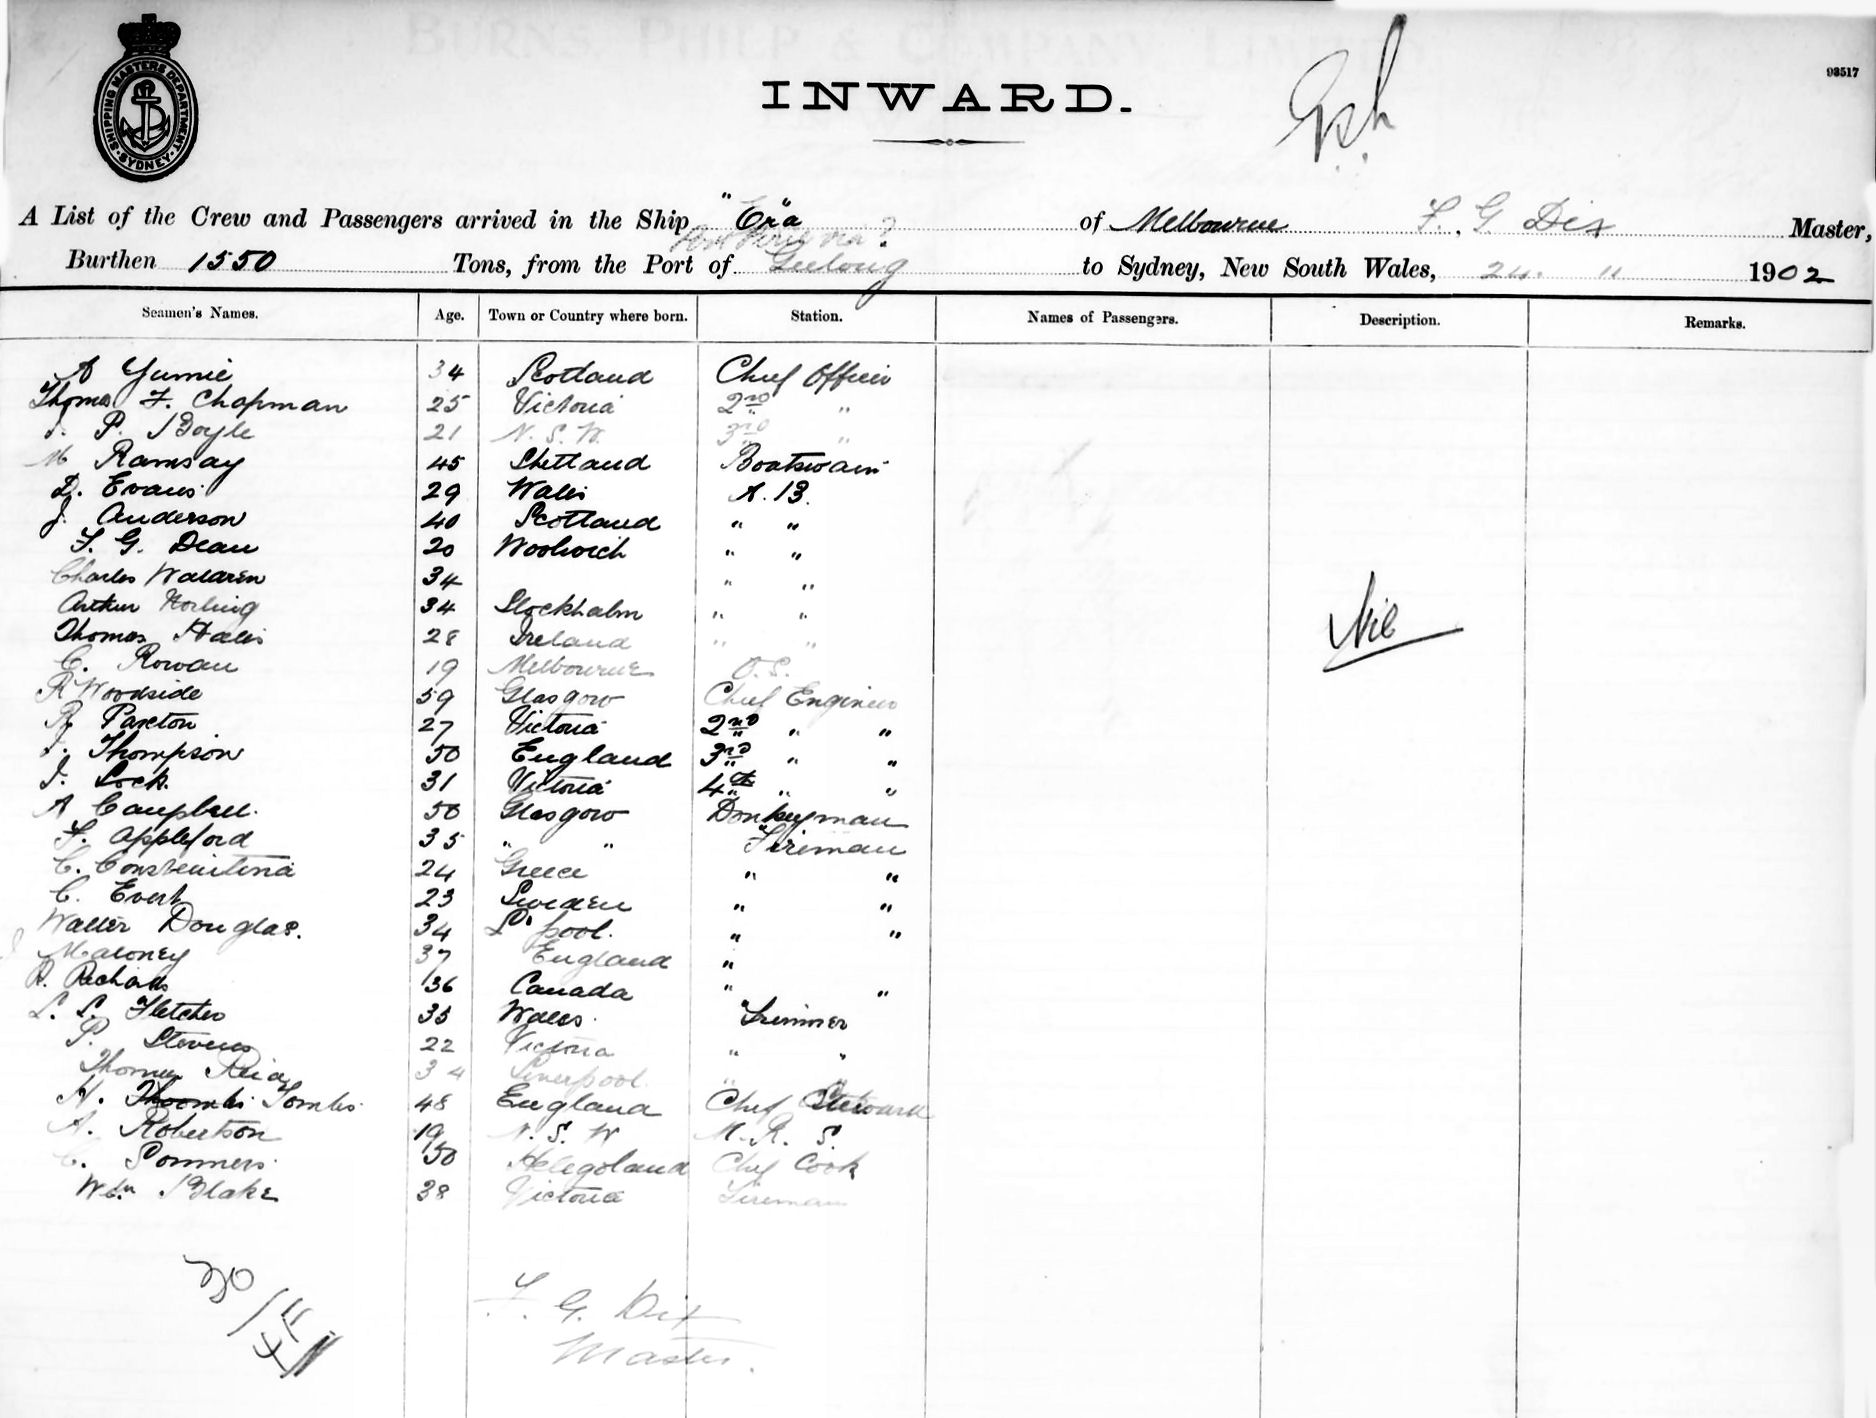 BURNS PHILP & COMPANY LIMITED
SHIPPING MASTERS DEPARTMENT · SYDNEY ·
93517
INWARD.
A List of the Crew and Passengers arrived in the Ship "Era" of Melbourne F. G Dix Master,
Burthen 1550 Tons, from the Port of Geelong to Sydney, New South Wales, 24. 11 1902
Seamen's Names. Age. Town or Country where born. Station. Names of Passengers. Description. Remarks.
A 34 Scotland Chief Officer
Thomas F. Chapman 25 Victoria 2nd "
P. Boyle 21 N. S. W. 3rd "
M Ramsay 45 Shetland Boatswain
D. Evans 29 Wales A. B.
J. Anderson 40 Scotland " "
F. G. Dean 20 Woolwich " "
Charles 34 " "
Arthur 34 Stockholm " "
Thomas 28 Ireland " "
C. Rowan 19 Melbourne O. S.
R Woodside 59 Glasgow Chief Engineer
R Paxton 27 Victoria 2nd " "
J. Thompson 50 England 3rd " "
J. Lock. 31 Victoria 4th " "
A Campbell. 50 Glasgow Donkeyman
F. Appleford 35 " " Fireman
C. 24 Greece " "
C. Evert 23 Sweden " "
Walter Douglas. 34 L'pool. " "
Maloney 37 England "
R. Richards 36 Canada " "
L. S. Fletcher 35 Wales. Trimmer
P. Stevens 22 Victoria " "
Thomas Reid 34 Liverpool. "
H. Thoombs Tombs. 48 England Chief Steward
A. Robertson 19 N. S. W M. R. S.
C. Sommers. 50 Helegoland Chef Cook
Wm Blake 38 Victoria Fireman
Nil
30
F. G. Dix
Master.